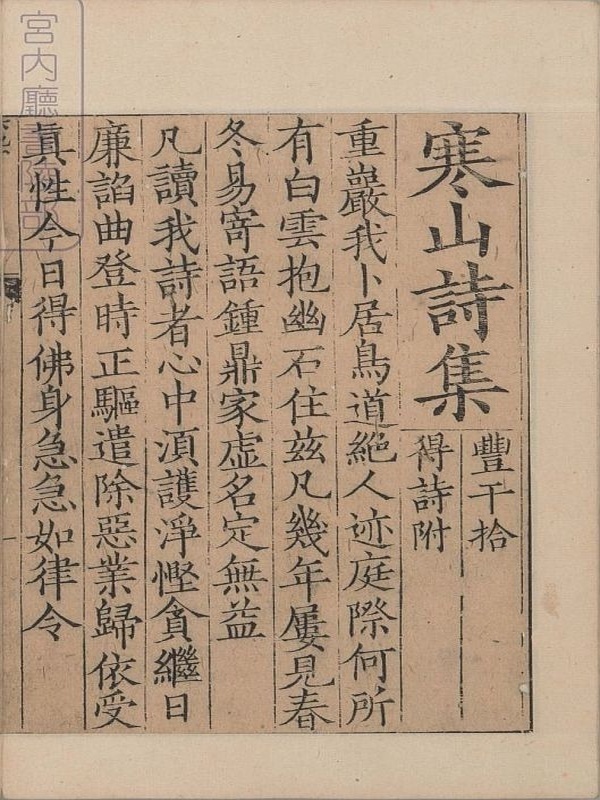 寒山詩集
豐干拾
得詩附
重巖我卜居鳥道絕人迹庭際何所
有白雲抱幽石住茲凡幾年屢見春
冬易寄語鍾鼎家虛名定無益
凡讀我詩者心中湏護淨慳貪繼日
廉諂曲登時正驅遣除惡業歸依受
真性今日得佛身急急如律令
宮內廳書陵部